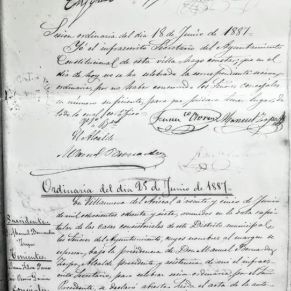 Sesión ordinaria del dia 18 de Junio de 1887.
Yó el infrascrito Secretario del Ayuntamiento
Constitucional de esta villa hago constar, que en el
dia de hoy no se ha celebrado la correspondiente sesion
ordinaria, por no haber concurrido los Señores concejales
en número suficiente, para que pudiera tener lugar, de
todo lo cual certifico.
El Alcalde
Manuel Bernardez
Ordinaria del dia 25 de Junio de 1887.
En Villanueva del a veinte y cinco de Junio
de mil ochocientos ochenta y siete, reunidos en la sala capi-
tular de las casas consistoriales de este Distrito municipal,
los Señores del Ayuntamiento, cuyos nombres al margen se
expresan, bajo la Presidencia de Don Manuel Bernardez
Alcalde presidente y asistencia de mi el infras-
crito Secretario, para celebrar sesion ordinaria, por el Señor
Presidente, se declaró abierta desde el acta de la ante-
Presidente
Manuel Bernardez
Tenientes